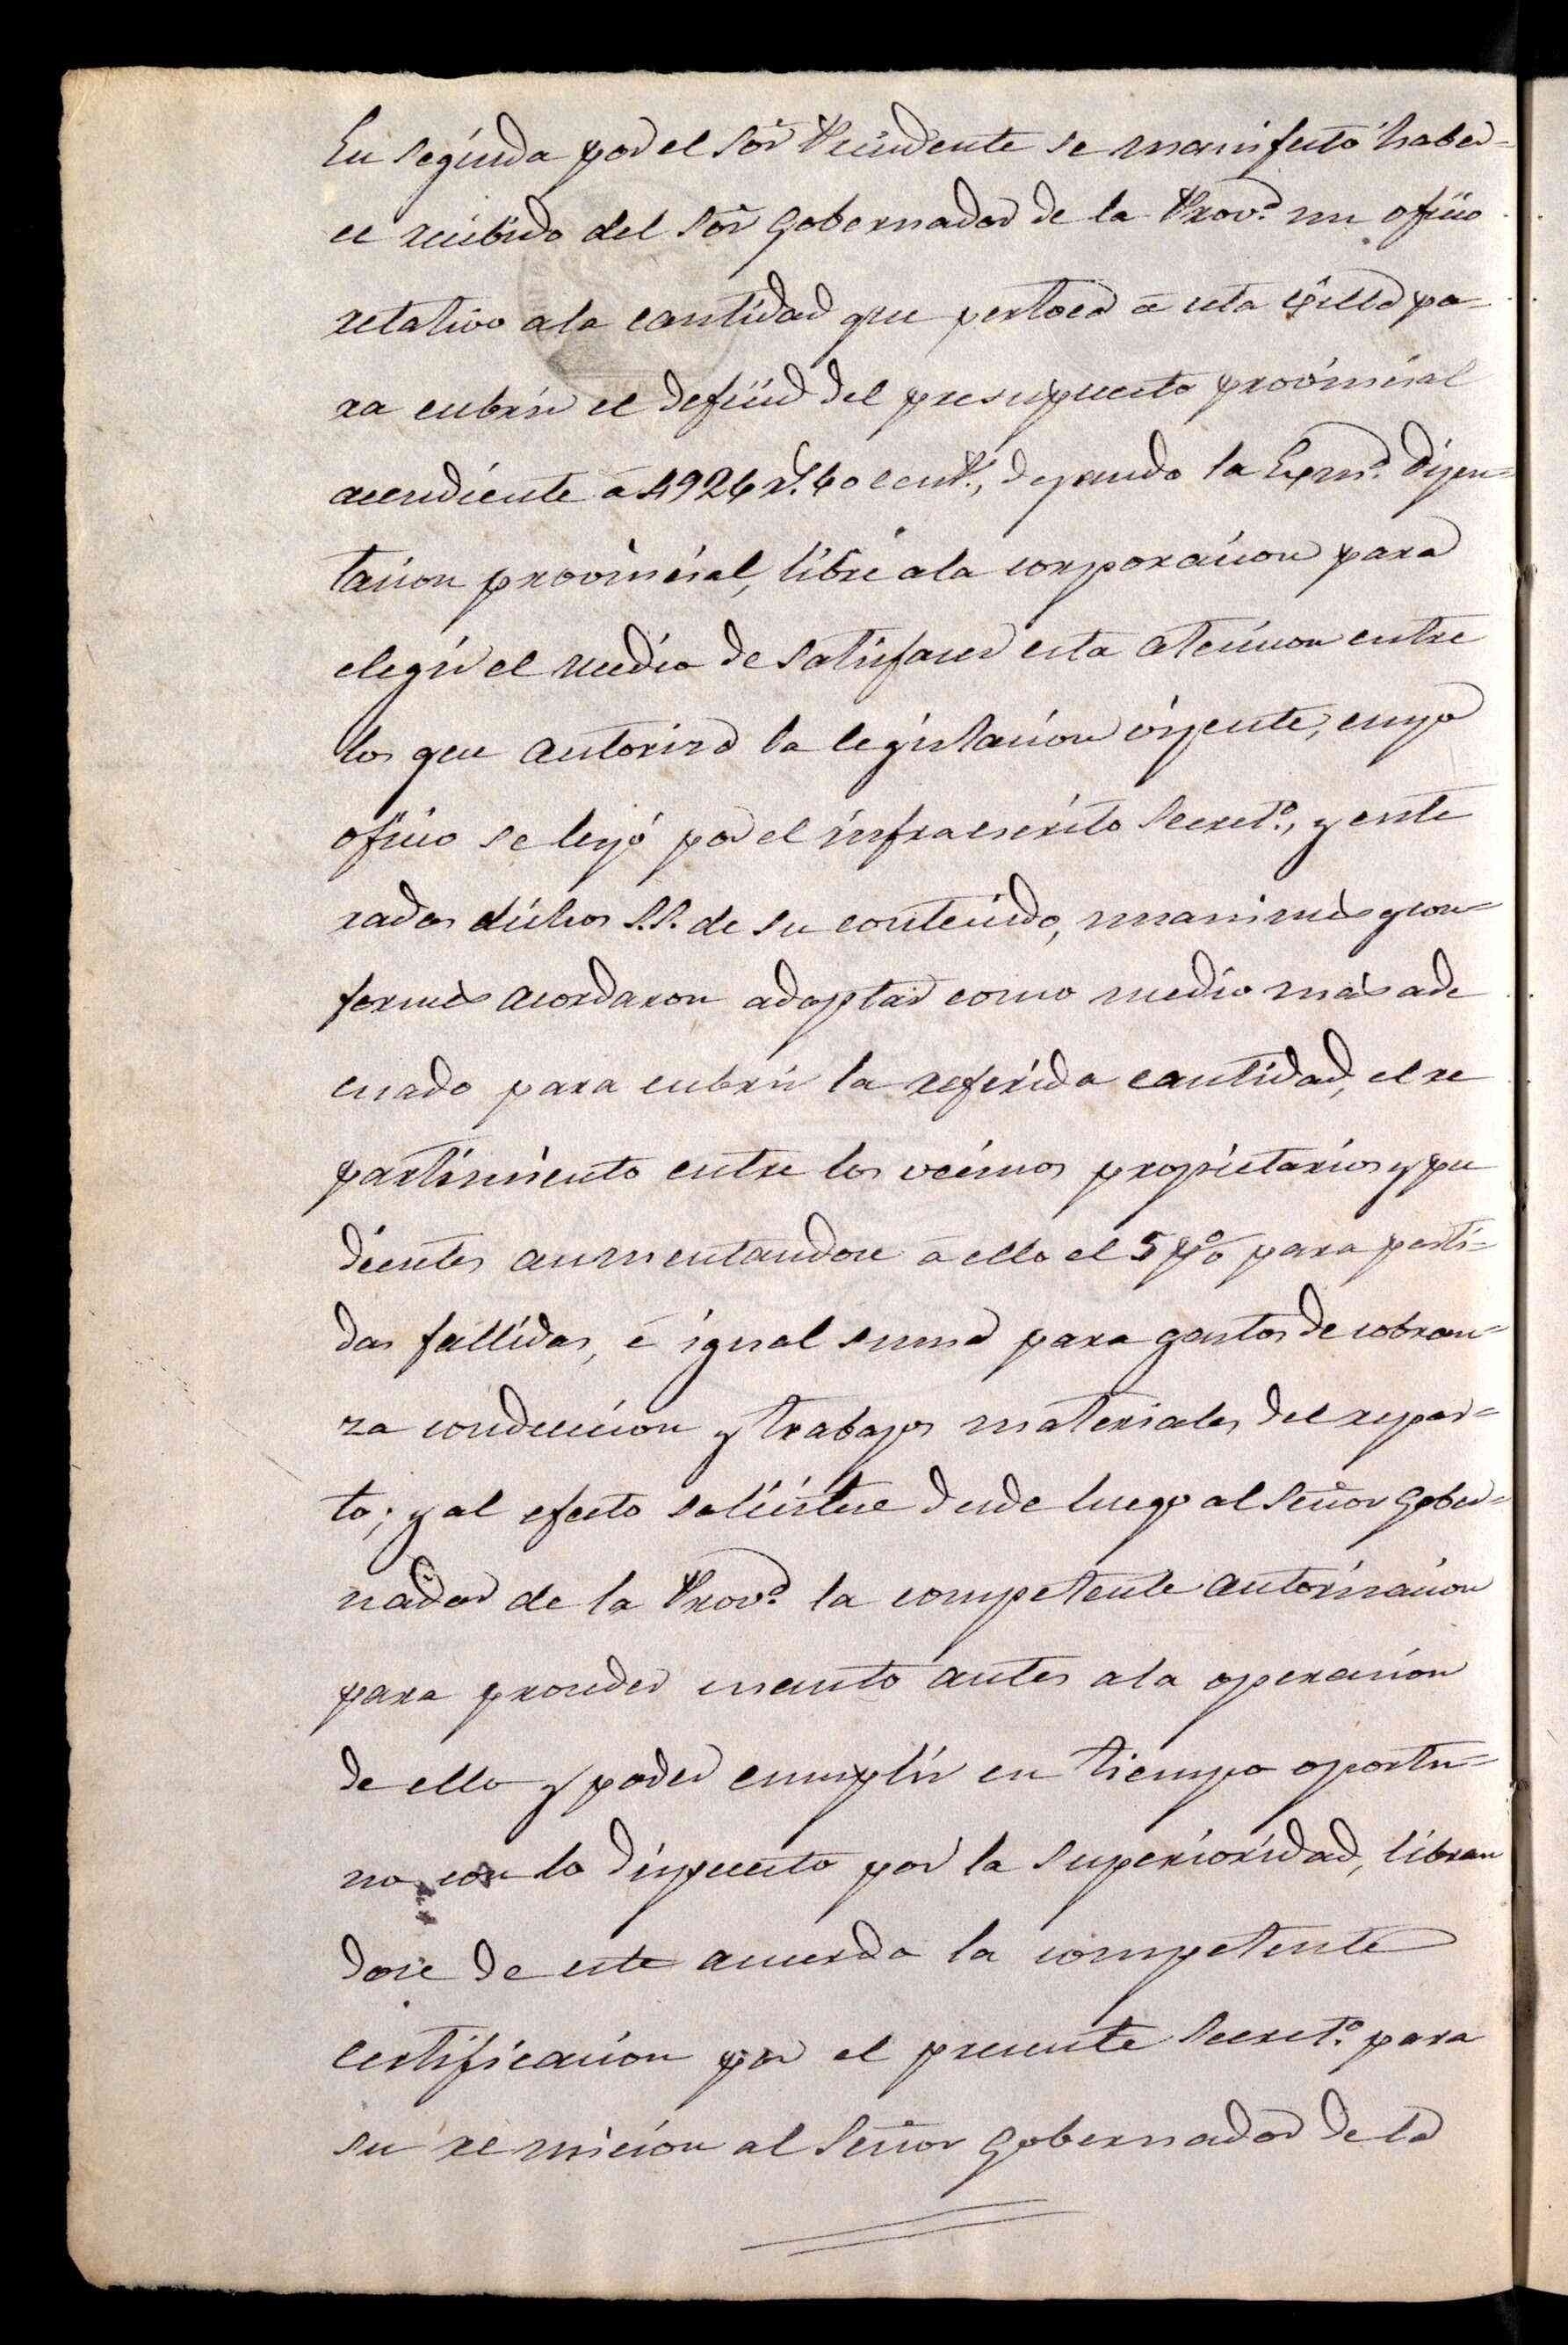 En segunda por el Sor Presidente se manifestó haber=
se recibido del Sor Gobernador de la Prov.ª un oficio
relativo a la cantidad que pertoca á esta Villa pa-
ra cubrir el deficid del presupuesto provincial
acendiente á 4926 r.s 60 cent.s, dejando la Exm.ª Dipu=
tacion provincial, libre a la corporacion para
elegir el medio de satisfacer esta atencion entre
los que autoriza la legislacion vigente, cuyo
oficio se leyó por el infraescrito Secret.º, y ente
rados dichos S.S. de su contenido, unanimes y con=
formes acordaron adoptar como medio más ade
cuado para cubrir la referida cantidad, el re
partimiento entre los vecinos propietarios y pu
dientes aumentandose á ello el 5 p% para parti=
das fallidas, é igual suma para gastos de cobran=
za conduccion y trabajos materiales del repar=
to; y al efecto solicitese desde luego al Señor Gober=
nador de la Prov.ª la competente autorizacion
para proceder cuanto antes a la operacion
de ello y poder cumplir en tiempo oportu=
no con lo dispuesto por la superioridad, libran
dose de este acuerdo la competente
certificacion por el presente Secret.º para
su remicion al Señor Gobernador de la